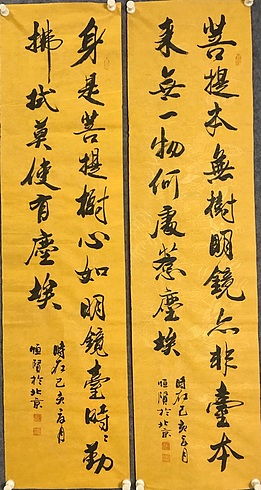 菩提本無樹明鏡亦非臺本
来無一物何處惹塵埃
時在己亥年月
恒智於北京
身是菩提樹心如明鏡臺時時勤
拂拭莫使有塵埃
時在己亥年月
恒智於北京